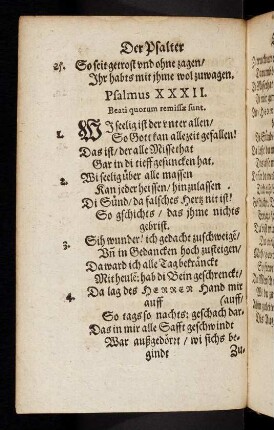 Der Psalter
25. So seit getrost vnd ohne zagen/
Ihr habts mit jhme wol zuwagen.
Psalmus XXXII.
Beati quorum remissæ sunt.
1. WI seelig ist der vnter allen/
So Gott kan allezeit gefallen!
Das ist/ der alle Missethat
Gar in di tieff gesuncken hat.
2. Wi seelig über alle massen
Kan jeder heissen/ hinzulassen
Di Sünd/ da falsches Herz nit ist!
So gschichts/ das jhme nichts
gebrist.
3. Sih wunder! ich gedacht zuschweigē/
Vñ in Gedancken hoch zusteigen/
Da ward ich alle Tag bekränckt
Mit heulē: hab di Bein geschrenckt/
4. Da lag des HERREN Hand mir
auff (auff/
So tags so nachts: geschach dar-
Das in mir alle Safft geschwindt
War außgedörrt/ wi sichs be-
gindt
Zu-